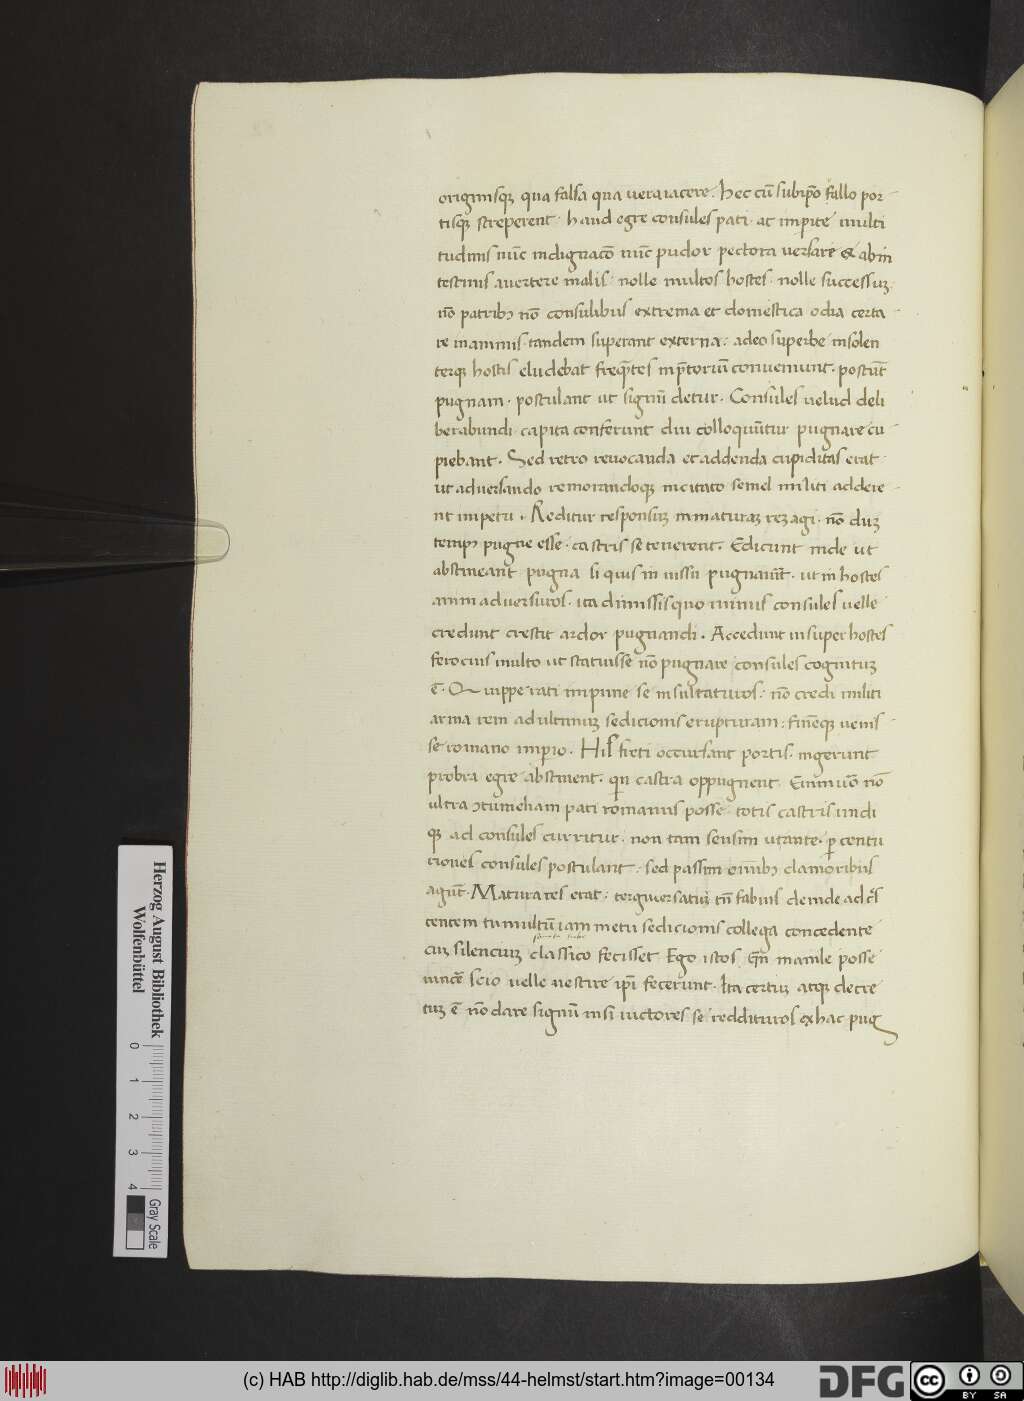 originisq; qua falsa qua vera iacere. Hec cũ sub ip̃o fallo por-
tisq; streperent. haud egre consules pati. ac impite multi
tudinis nũc indignacõ nũc pudor pectora versare & ab in
testinis avertere malis. nolle multos hostes. nolle successuȝ.
nõ patribꝰ nõ consulibus extrema et domestica odia certa-
re in animis. tandem superant externa. adeo superbe insolen
terq; hostis eludebat freq̃tes in p̃toriũ conveniunt. poscũt
pugnam. postulant ut signũ detur. Consules velud deli
berabundi capita conferunt diu colloquũtur pugnare cu-
piebant. Sed retro revocanda et addenda cupiditas erat.
ut adversando remorandoq; incitato semel militi addere-
nt impetu. Reditur responsuȝ inmaturaȝ reȝ agi. nõ duȝ
tempꝰ pugne esse. castris se tenerent. Edicunt inde ut
abstineant pugna si quis in iussu pugnavũt. ut in hostes
anim adversuros. ita dimissis quo minus consules velle
credunt crescit ardor pugnandi. Accedunt insuper hostes
ferocius multo ut statuisse nõ pugnare consules cognituȝ
ẽ. Quippe rati impune se insultaturos. nõ credi militi
arma rem ad ultimuȝ sedicionis erupturam. finẽq; venis-
se romano imp̱io. His freti occursant portis. ingerunt
probra egre abstinent. qn̄ castra oppugnent. Enimvõ nõ
ultra ↄtumeliam pati romanus posse. totis castris undi
q; ad consules curritur. non tam sensim ut ante. p̱ centu
riones consules postulant. sed passim omĩbꝰ clamoribus
agũt. Matura res erat. tergiversatur tñ fabius deinde ad
centem tumultũ iam metu sedicionis collega concedente
cuȝ silenciuȝ classico fecisset Ego istos Gn̄ manile posse
vincẽ scio velle ne scire ip̃i fecerunt. Ita certuȝ atq; decre
tuȝ ẽ nõ dare signũ nisi victores se reddituros ex hac pug
Herzog August Bibliothek
Wolfenbüttel
0 1 2 3 4
Gray Scale
(c) HAB http://diglib.hab.de/mss/44-helmst/start.htm?image=00134
DFG
cc BY SA